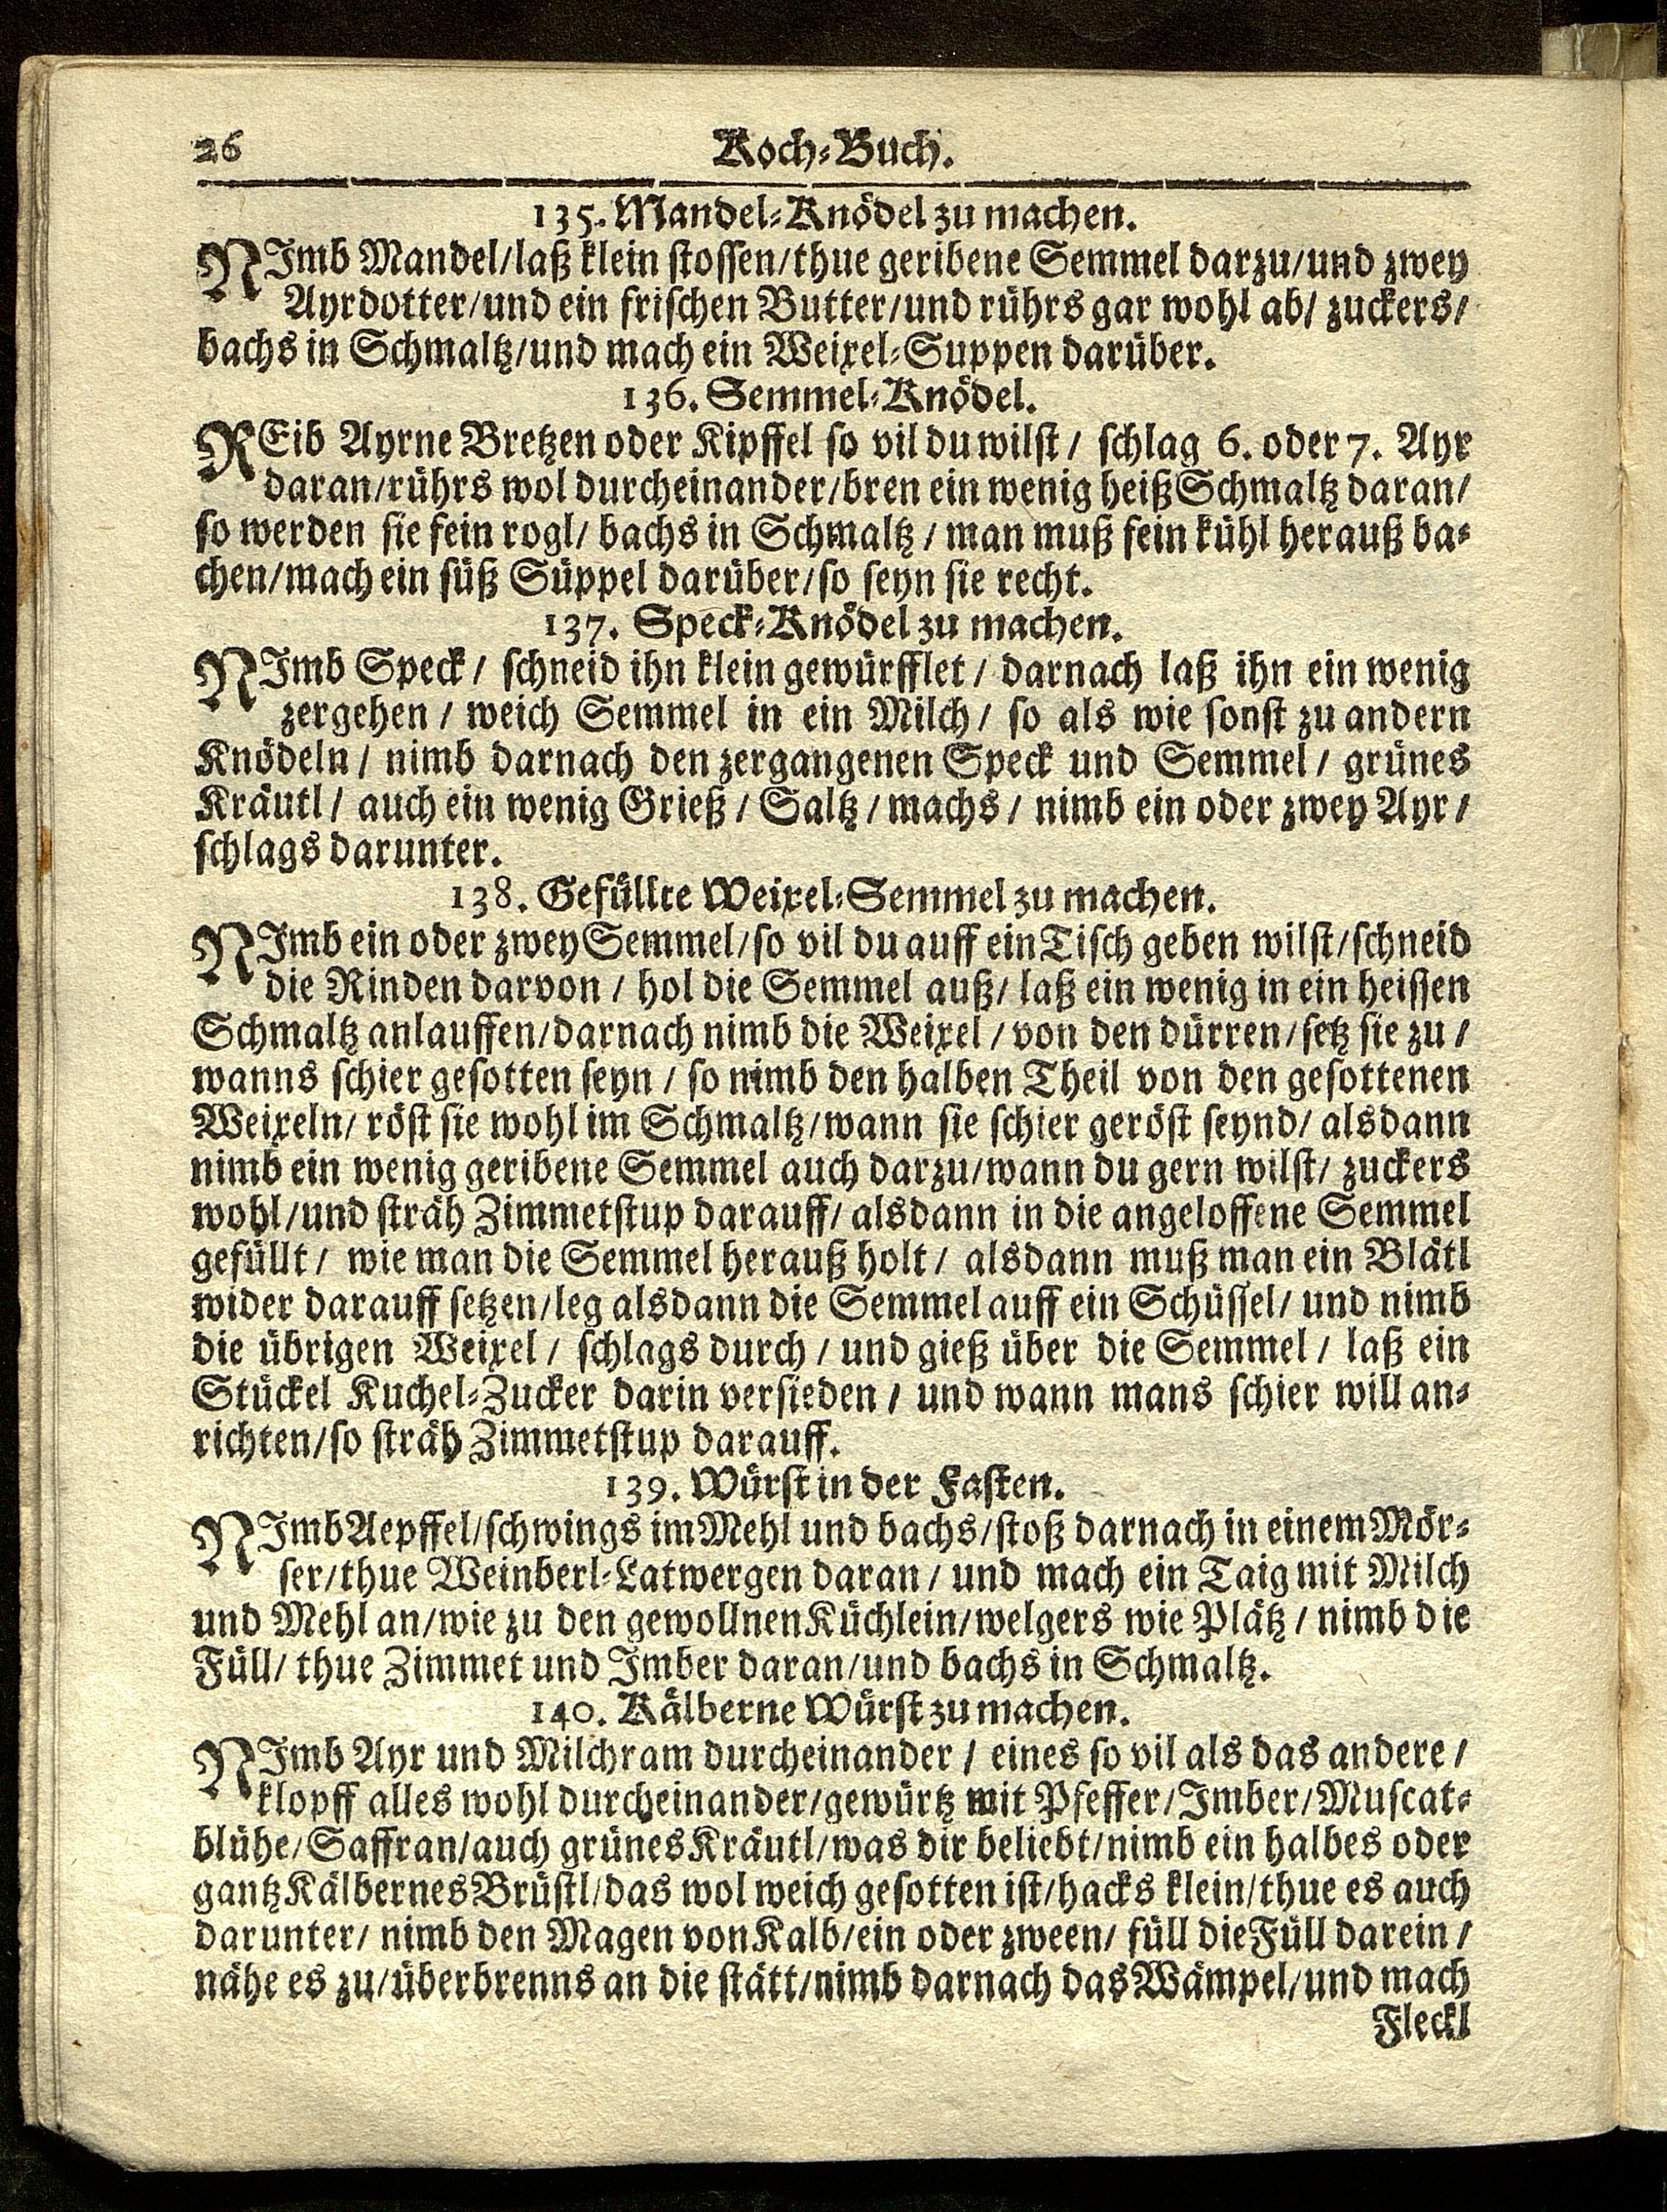 26 Koch-Buch.
135. Mandel-Knödel zu machen.
NImb Mandel/laß klein stossen/thue geribene Semmel darzu/und zwey
Ayrdotter/und ein frischen Butter/und rührs gar wohl ab/ zuckers/
bachs in Schmaltz/und mach ein Weixel-Suppen darüber.
136. Semmel-Knödel.
REib Ayrne Bretzen oder Kipffel so vil du wilst / schlag 6. oder 7. Ayr
daran/rührs wol durcheinander/bren ein wenig heiß Schmaltz daran/
so werden sie fein rogl/ bachs in Schmaltz / man muß fein kühl herauß ba-
chen/mach ein süß Süppel darüber/so seyn sie recht.
137. Speck-Knödel zu machen.
NImb Speck / schneid ihn klein gewürfflet / darnach laß ihn ein wenig
zergehen / weich Semmel in ein Milch / so als wie sonst zu andern
Knödeln / nimb darnach den zergangenen Speck und Semmel / grünes
Kräutl / auch ein wenig Grieß / Saltz / machs / nimb ein oder zwey Ayr /
schlags darunter.
138. Gefüllte Weixel-Semmel zu machen.
NImb ein oder zwey Semmel/so vil du auff ein Tisch geben wilst/schneid
die Rinden darvon / hol die Semmel auß/ laß ein wenig in ein heissen
Schmaltz anlauffen/darnach nimb die Weixel / von den dürren/setz sie zu /
wanns schier gesotten seyn / so nimb den halben Theil von den gesottenen
Weixeln/ röst sie wohl im Schmaltz/wann sie schier geröst seynd/ alsdann
nimb ein wenig geribene Semmel auch darzu/wann du gern wilst/ zuckers
wohl/und sträh Zimmetstup darauff/ alsdann in die angeloffene Semmel
gefüllt / wie man die Semmel herauß holt / alsdann muß man ein Blätl
wider darauff setzen/leg alsdann die Semmel auff ein Schüssel/ und nimb
die übrigen Weixel / schlags durch / und gieß über die Semmel / laß ein
Stückel Kuchel-Zucker darin versieden / und wann mans schier will an-
richten/so sträh Zimmetstup darauff.
139. Würst in der Fasten.
NImb Aepffel/schwings im Mehl und bachs/stoß darnach in einem Mör-
ser/thue Weinberl-Latwergen daran / und mach ein Taig mit Milch
und Mehl an/wie zu den gewollnen Küchlein/welgers wie Plätz / nimb die
Füll/ thue Zimmet und Imber daran/und bachs in Schmaltz.
140. Kälberne Würst zu machen.
NImb Ayr und Milchram durcheinander / eines so vil als das andere /
klopff alles wohl durcheinander/gewürtz mit Pfeffer/Imber/Muscat-
blühe/Saffran/auch grünes Kräutl/was dir beliebt/nimb ein halbes oder
gantz Kälbernes Brüstl/das wol weich gesotten ist/hacks klein/thue es auch
darunter/ nimb den Magen von Kalb/ein oder zween/ füll die Füll darein /
nähe es zu/überbrenns an die stätt/nimb darnach das Wämpel/und mach
Fleckl